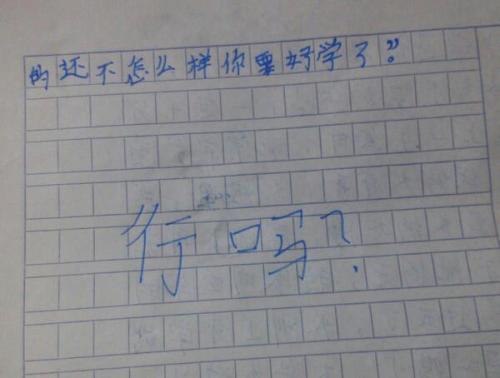 的还不怎么样你要好学了？”
行吗？